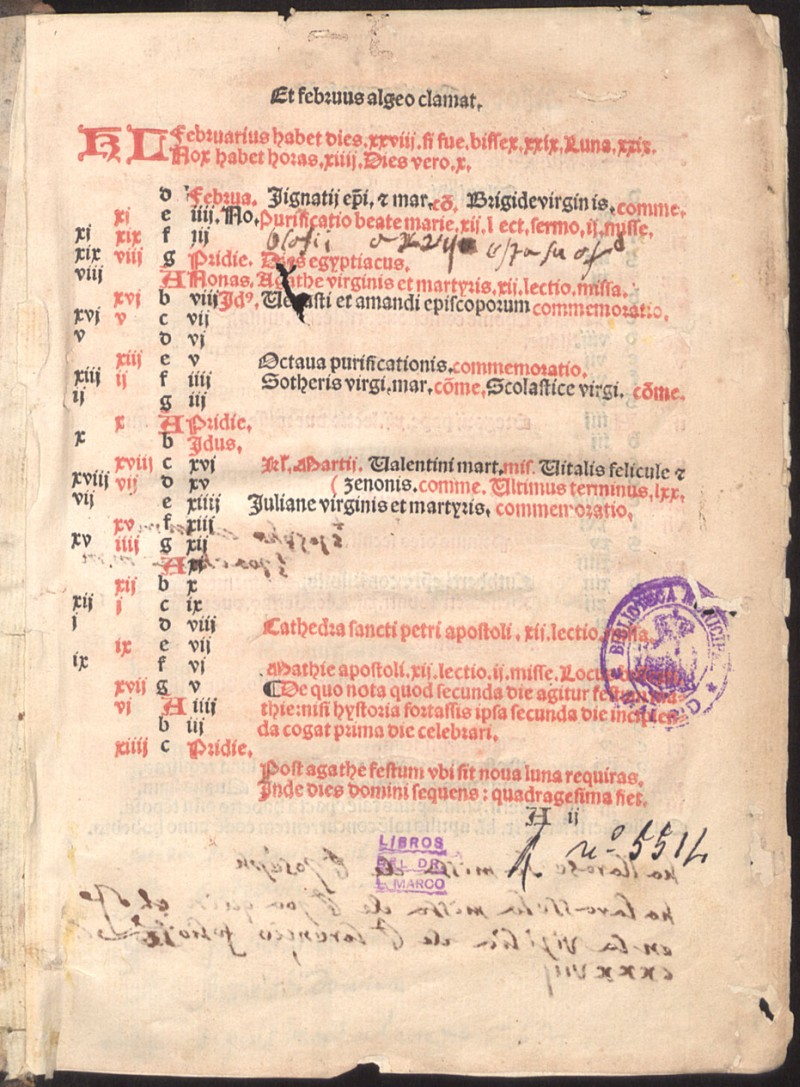 Et februus algeo clamat.
KL Februarius habet dies.xxviij.si fue.bissex.xxix.Luna.xxix.
Nox habet horas.xiiij.Dies vero.x.
d Februa. Jignatij ep̄i. ⁊ mar.cō. Brigide virginis.comme.
xj e iiij.No. Purificatio beate marie.xij.lect.sermo.ij.misse.
xj xix f iij
xix viij g Pridie. Dies egyptiacus.
viij A Nonas. Agathe virginis et martyris.xij.lectio.missa.
xvj b viij Jdꝰ. Uedasti et amandi episcoporum commemoratio.
xvj v c vij
v d vj
xiij e v Octaua purificationis.commemoratio.
xiij ij f iiij Sotheris virgi.mar.cōme.Scolastice virgi. cōme.
ij g iij
x A Pridie.
x b Jdus.
xviij c xvj Kl̄.Martij. Ualentini mart.mis. Uitalis felicule ⁊
xviij vij d xv (zenonis.comme. Ultimus terminus.lxx.
vij e xiiij Juliane virginis et martyris. commemoratio.
xv f xiij
xv iiij g xij
A xj
xij b x
xij j c ix
j d viij Cathedra sancti petri apostoli . xij.lectio.missa.
ix e vij
ix f vj Mathie apostoli.xij.lectio.ij.misse.
xvij g v ¶De quo nota quod secunda die agitur festum ma-
vj A iiij thie:nisi hystoria fortassis ipsa secunda die incipien-
b iij da cogat prima die celebrari.
xiiij c Pridie.
Post agathe festum vbi sit noua luna requiras.
Inde dies domini sequens : quadragesima fiet.
A ij
nº 5514
BIBLIOTECA MUNICIPAL
LIBROS
DEL DR.
L. MARCO